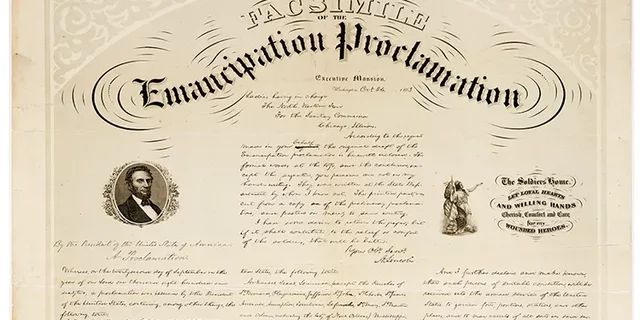 FACSIMILE
OF THE
Emancipation Proclamation
Executive Mansion,
Washington, Oct 26, 1863
Ladies having in charge
The North Western Fair
For the Sanitary Commission
Chicago, Illinois.
According to the request
made in your behalf, the original draft of the
Emancipation proclamation is herewith enclosed. The
formal words at the top, and the conclusion, ex-
cept the signature, you perceive, are not in my
hand-writing. They were written at the State Dep-
artment by whom I know not. The printed part was
cut from a copy of the preliminary proclama-
tion, and pasted on merely to save writing.
I had some desire to retain the paper; but
if it shall contribute to the relief or comfort
of the soldiers, that will be better.
Your Obt. Servt.
A. Lincoln
The Soldiers Home.
LET LOYAL HEARTS
AND WILLING HANDS
Cherish, Comfort and Care
for my
WOUNDED HEROES.
By the President of the United States of America:
A Proclamation.
Whereas, on the twenty-second day of September, in the
year of our Lord one thousand eight hundred and
sixty-two, a proclamation was issued by the President
of the United States, containing, among other things, the
following, to wit:
States, the following, to wit:
Arkansas, Texas, Louisiana, (except the Parishes of
And I further declare and make known,
that such persons of suitable condition, will be
received into the armed service of the United
States to garrison forts, positions, stations, and other
places, and to man vessels of all sorts in said